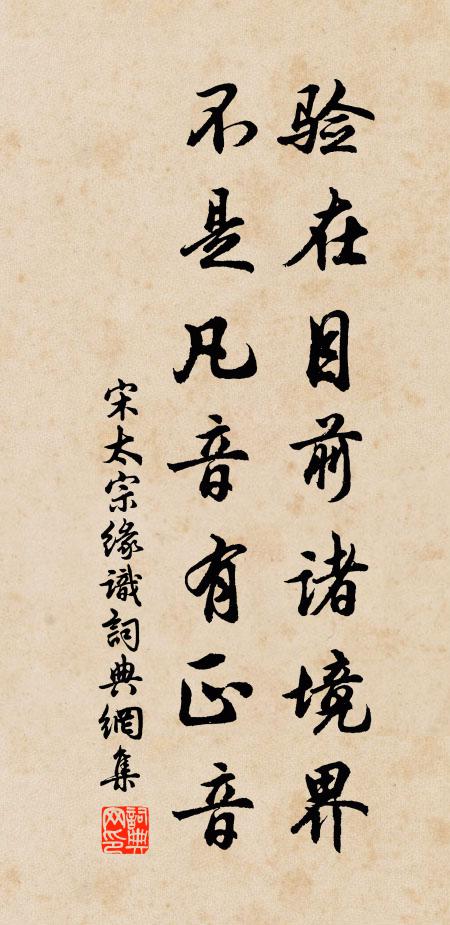 验在目前诸境界
不是凡音有正音
宋太宗缘識詞典網集
詞典网印